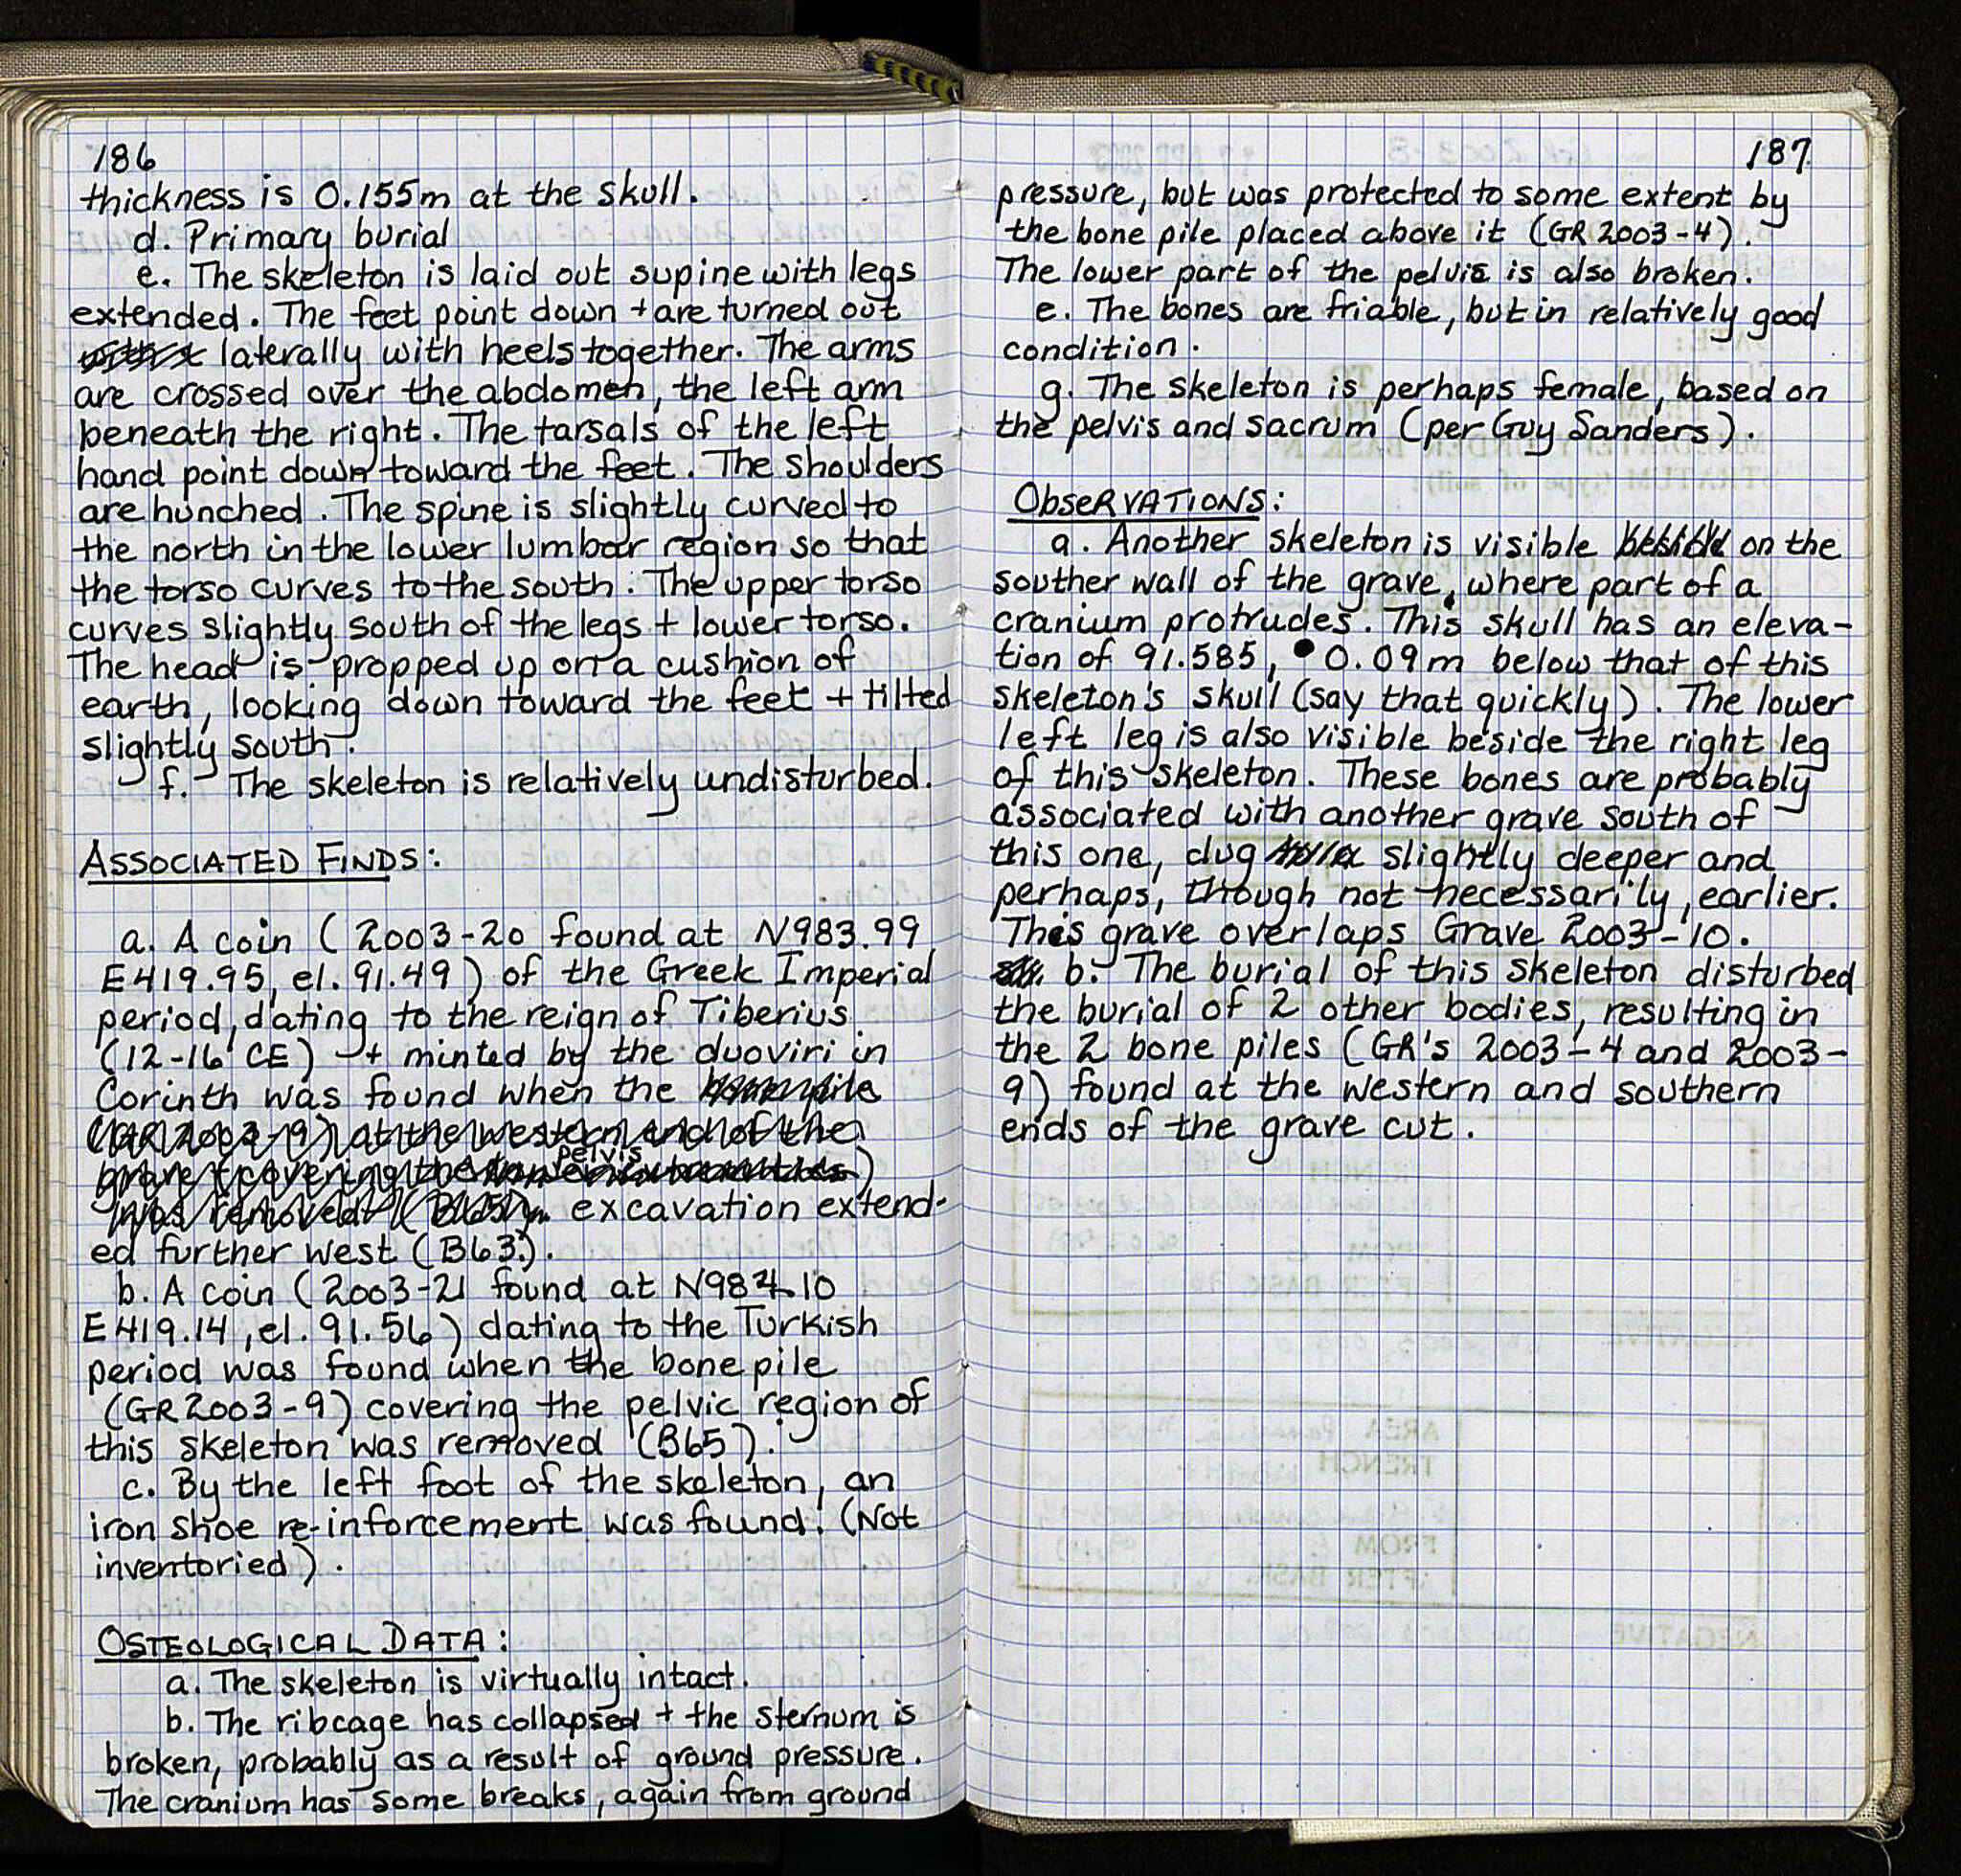 186
thickness is 0.155m at the skull.
d. Primary burial
e. The skeleton is laid out supine with legs
extended. The feet point down + are turned out
laterally with heels together. The arms
are crossed over the abdomen, the left arm
beneath the right. The tarsals of the left
hand point down toward the feet. The shoulders
are hunched. The spine is slightly curved to
the north in the lower lumbar region so that
the torso curves to the south. The upper torso
curves slightly south of the legs + lower torso.
The head is propped up on a cushion of
earth, looking down toward the feet + tilted
slightly south.
f. The skeleton is relatively undisturbed.
ASSOCIATED FINDS:
a. A coin (2003-20 found at N983.99
E419.95, el. 91.49) of the Greek Imperial
period, dating to the reign of Tiberius
(12-16 CE) + minted by the duoviri in
Corinth was found when the bone pile
(GR 2003-9) at the western end of the
pelvis
grave (covering the lower extremities)
was removed (B65). excavation extend-
ed further west (B63).
b. A coin (2003-21 found at N984.10
E419.14, el. 91.56) dating to the Turkish
period was found when the bone pile
(GR2003-9) covering the pelvic region of
this skeleton was removed (B65).
c. By the left foot of the skeleton, an
iron shoe re-inforcement was found. (Not
inventoried).
OSTEOLOGICAL DATA:
a. The skeleton is virtually intact.
b. The ribcage has collapsed + the sternum is
broken, probably as a result of ground pressure.
The cranium has some breaks, again from ground
187
pressure, but was protected to some extent by
the bone pile placed above it (GR 2003-4).
The lower part of the pelvis is also broken.
e. The bones are friable, but in relatively good
condition.
g. The skeleton is perhaps female, based on
the pelvis and sacrum (per Guy Sanders).
OBSERVATIONS:
a. Another skeleton is visible beside on the
souther wall of the grave, where part of a
cranium protrudes. This skull has an eleva-
tion of 91.585, 0.09m below that of this
skeleton's skull (say that quickly). The lower
left leg is also visible beside the right leg
of this skeleton. These bones are probably
associated with another grave south of
this one, dug slightly deeper and
perhaps, though not necessarily, earlier.
This grave overlaps Grave 2003-10.
b. The burial of this skeleton disturbed
the burial of 2 other bodies, resulting in
the 2 bone piles (GR's 2003-4 and 2003-
9) found at the western and southern
ends of the grave cut.